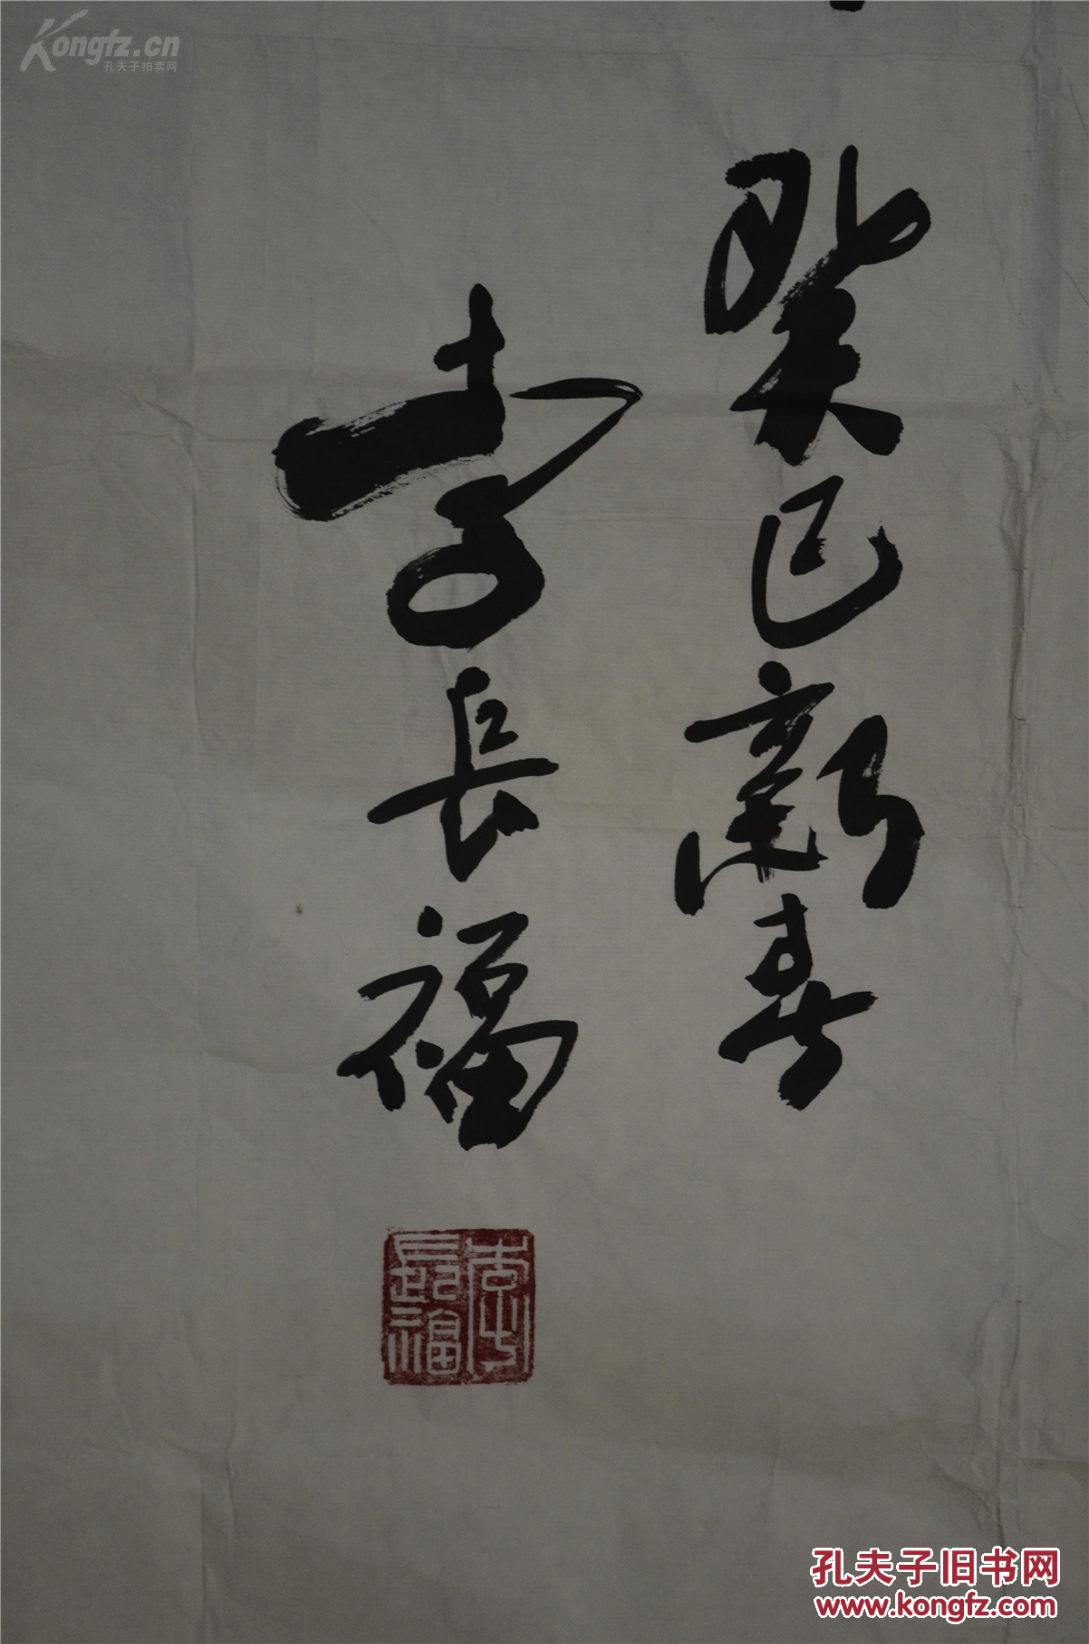 Kongfz.cn
孔夫子拍卖网
癸巳新春
李長福
李長福
孔夫子旧书网
www.kongfz.com